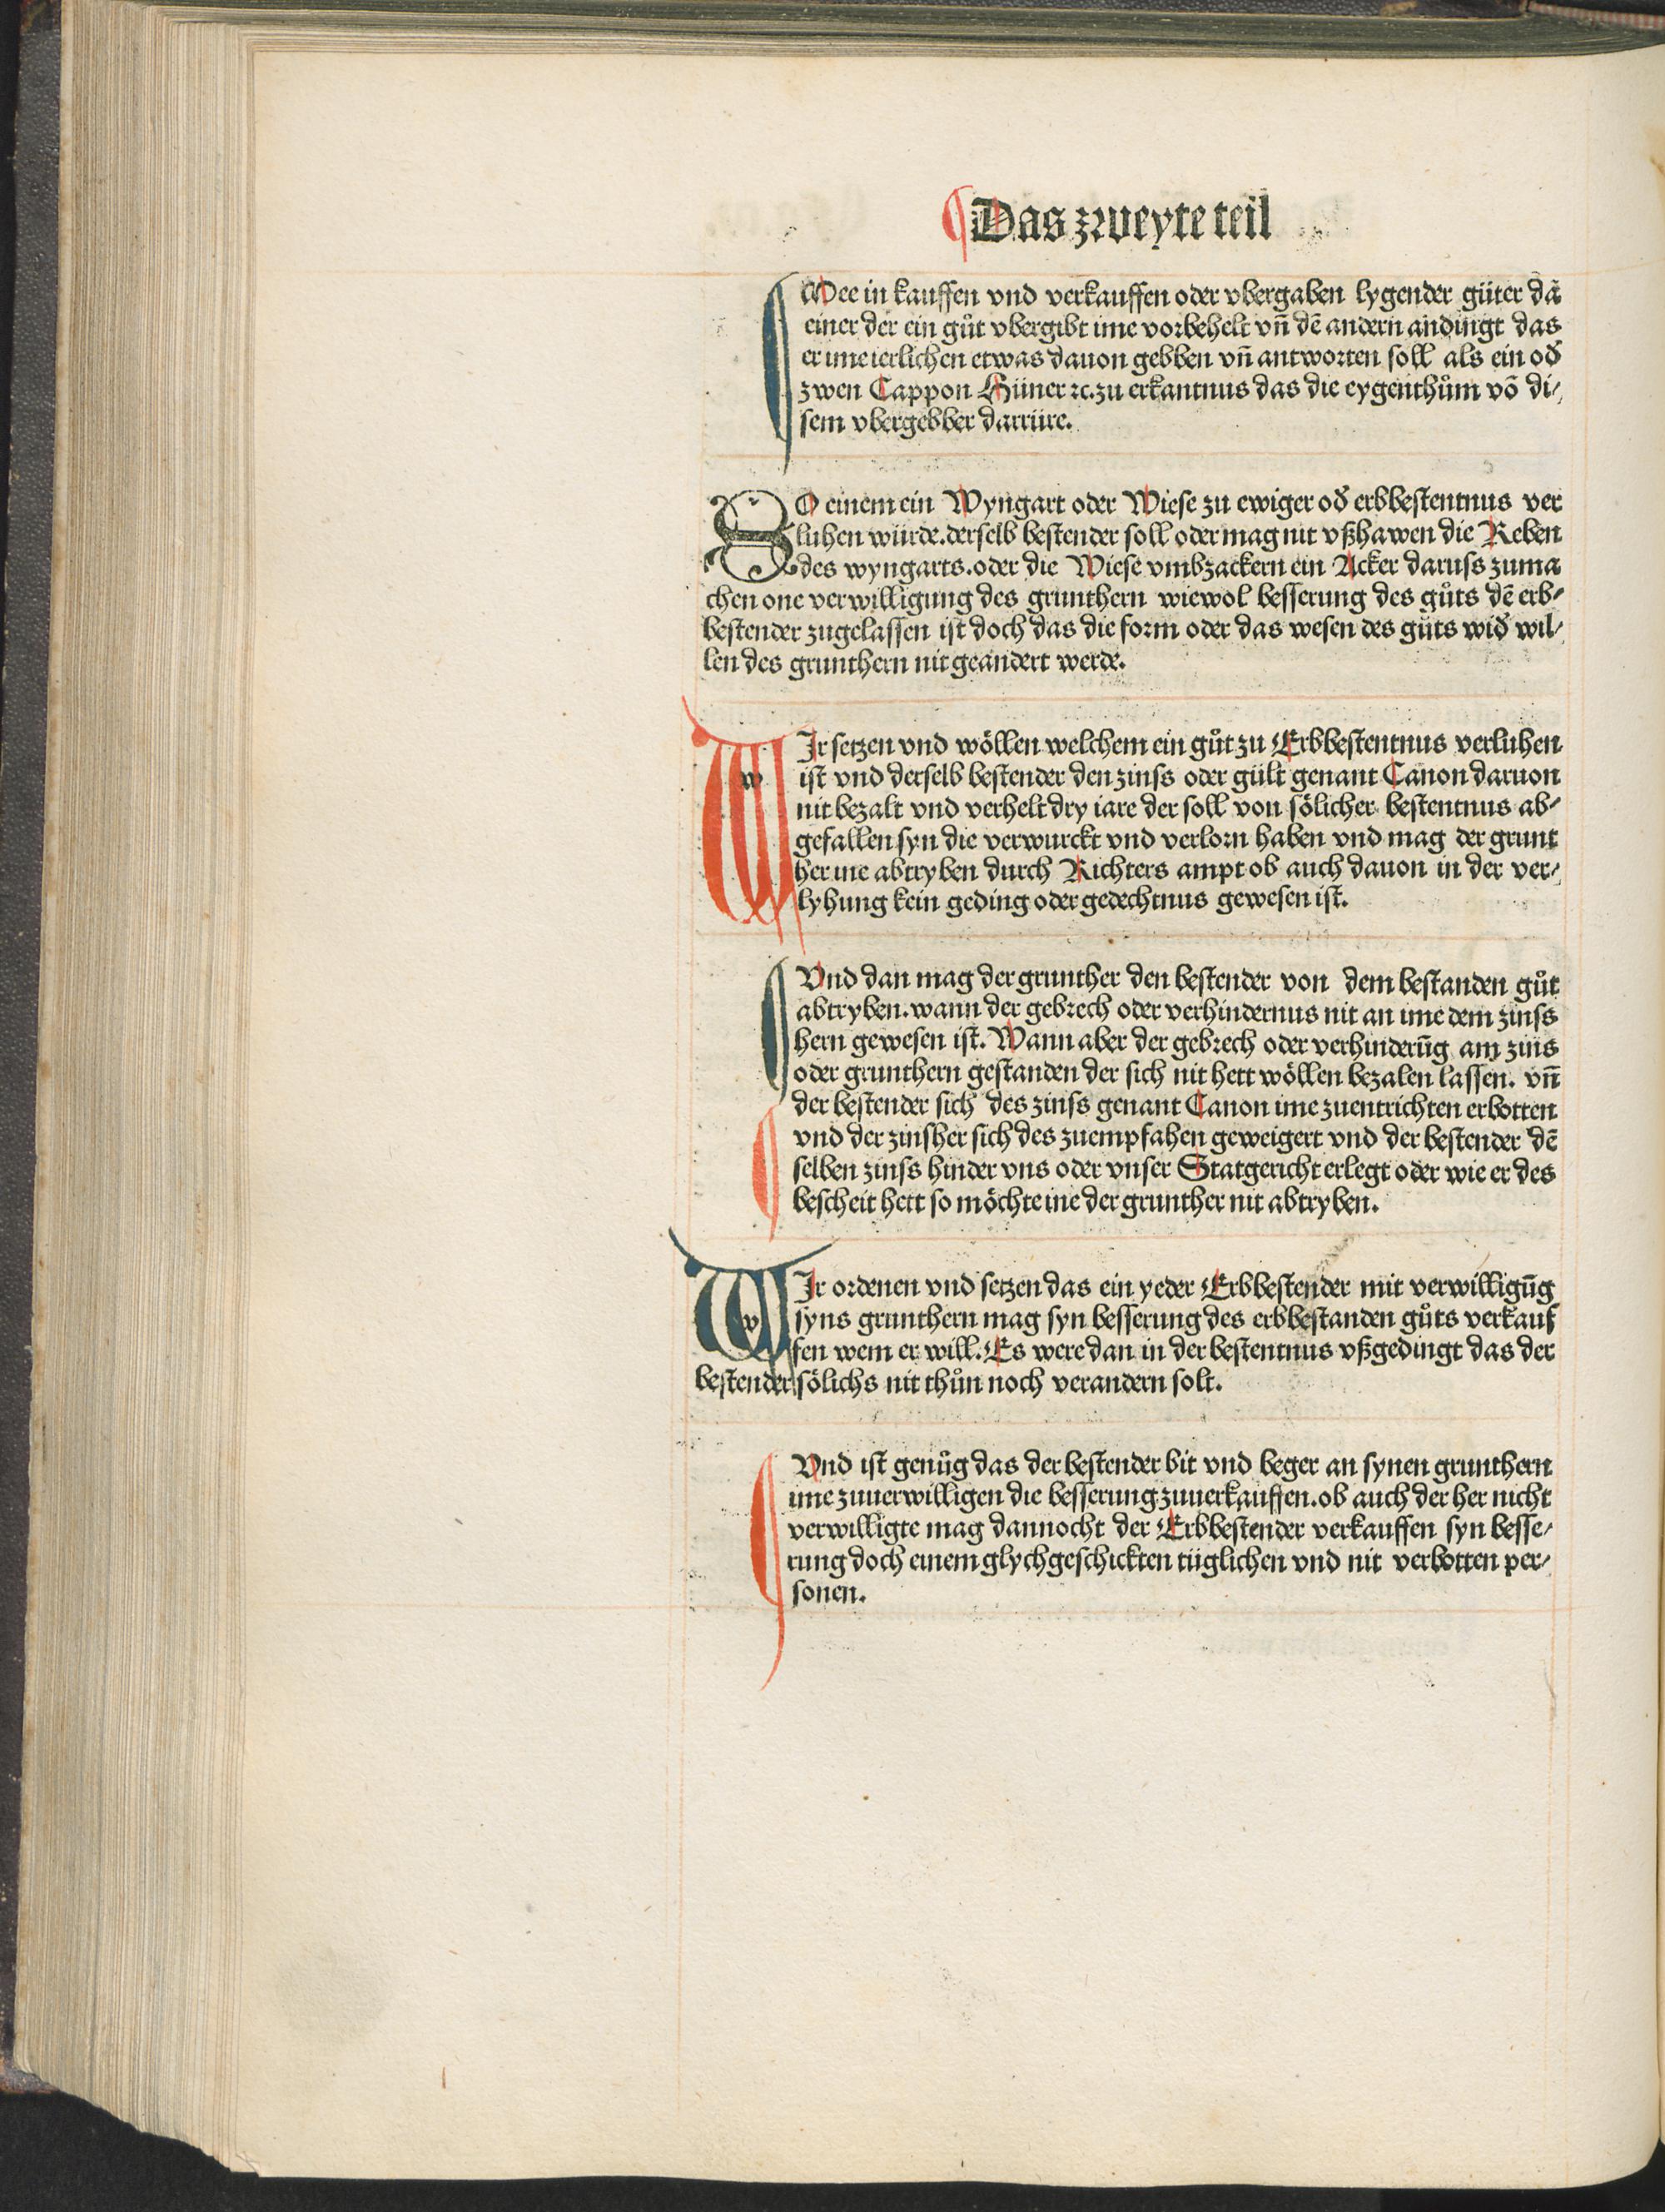 Das zweyte teil
Mee in kauffen vnd verkauffen oder vbergaben lygender güter dā
einer der ein gůt vbergibt ime vorbehelt vn̄ dē andern andingt das
er ime ierlichen etwas dauon gebben vn̄ antworten soll als ein oď
zwen Cappon Hüner ꝛc. zu erkantnus das die eygenthům vō di⸗
sem vbergebber darrüre.
SO einem ein Wyngart oder Wiese zu ewiger oď erbbestentnus ver
luhen würde. derselb bestender soll oder mag nit vßhawen die Reben
des wyngarts. oder die Wiese vmbzackern ein Acker daruss zuma
chen one verwilligung des grunthern wiewol besserung des gůts dē erb⸗
bestender zugelassen ist doch das die form oder das wesen des gůts wiď wil⸗
len des grunthern nit geandert werde.
WIr setzen vnd wöllen welchem ein gůt zu Erbbestentnus verluhen
ist vnd derselb bestender den zinss oder gült genant Canon daruon
nit bezalt vnd verhelt dry iare der soll von sölicher bestentnus ab⸗
gefallen syn die verwurckt vnd verlorn haben vnd mag der grunt
her ine abtryben durch Richters ampt ob auch dauon in der ver⸗
lyhung kein geding oder gedechtnus gewesen ist.
Vnd dan mag der grunther den bestender von dem bestanden gůt
abtryben. wann der gebrech oder verhindernus nit an ime dem zinss
hern gewesen ist. Wann aber der gebrech oder verhinderūg am zins
oder grunthern gestanden der sich nit hett wöllen bezalen lassen. vn̄
der bestender sich des zinss genant Canon ime zuentrichten erbotten
vnd der zinsher sich des zuempfahen geweigert vnd der bestender dē
selben zinss hinder vns oder vnser Statgericht erlegt oder wie er des
bescheit hett so möchte ine der grunther nit abtryben.
WIr ordenen vnd setzen das ein yeder Erbbestender mit verwilligūg
syns grunthern mag syn besserung des erbbestanden gůts verkauf
fen wem er will. Es were dan in der bestentnus vßgedingt das der
bestender sölichs nit thůn noch verandern solt.
Vnd ist genůg das der bestender bit vnd beger an synen grunthern
ime zuuerwilligen die besserung zuuerkauffen. ob auch der her nicht
verwilligte mag dannocht der Erbbestender verkauffen syn besse⸗
rung doch einem glychgeschickten tüglichen vnd nit verbotten per⸗
sonen.